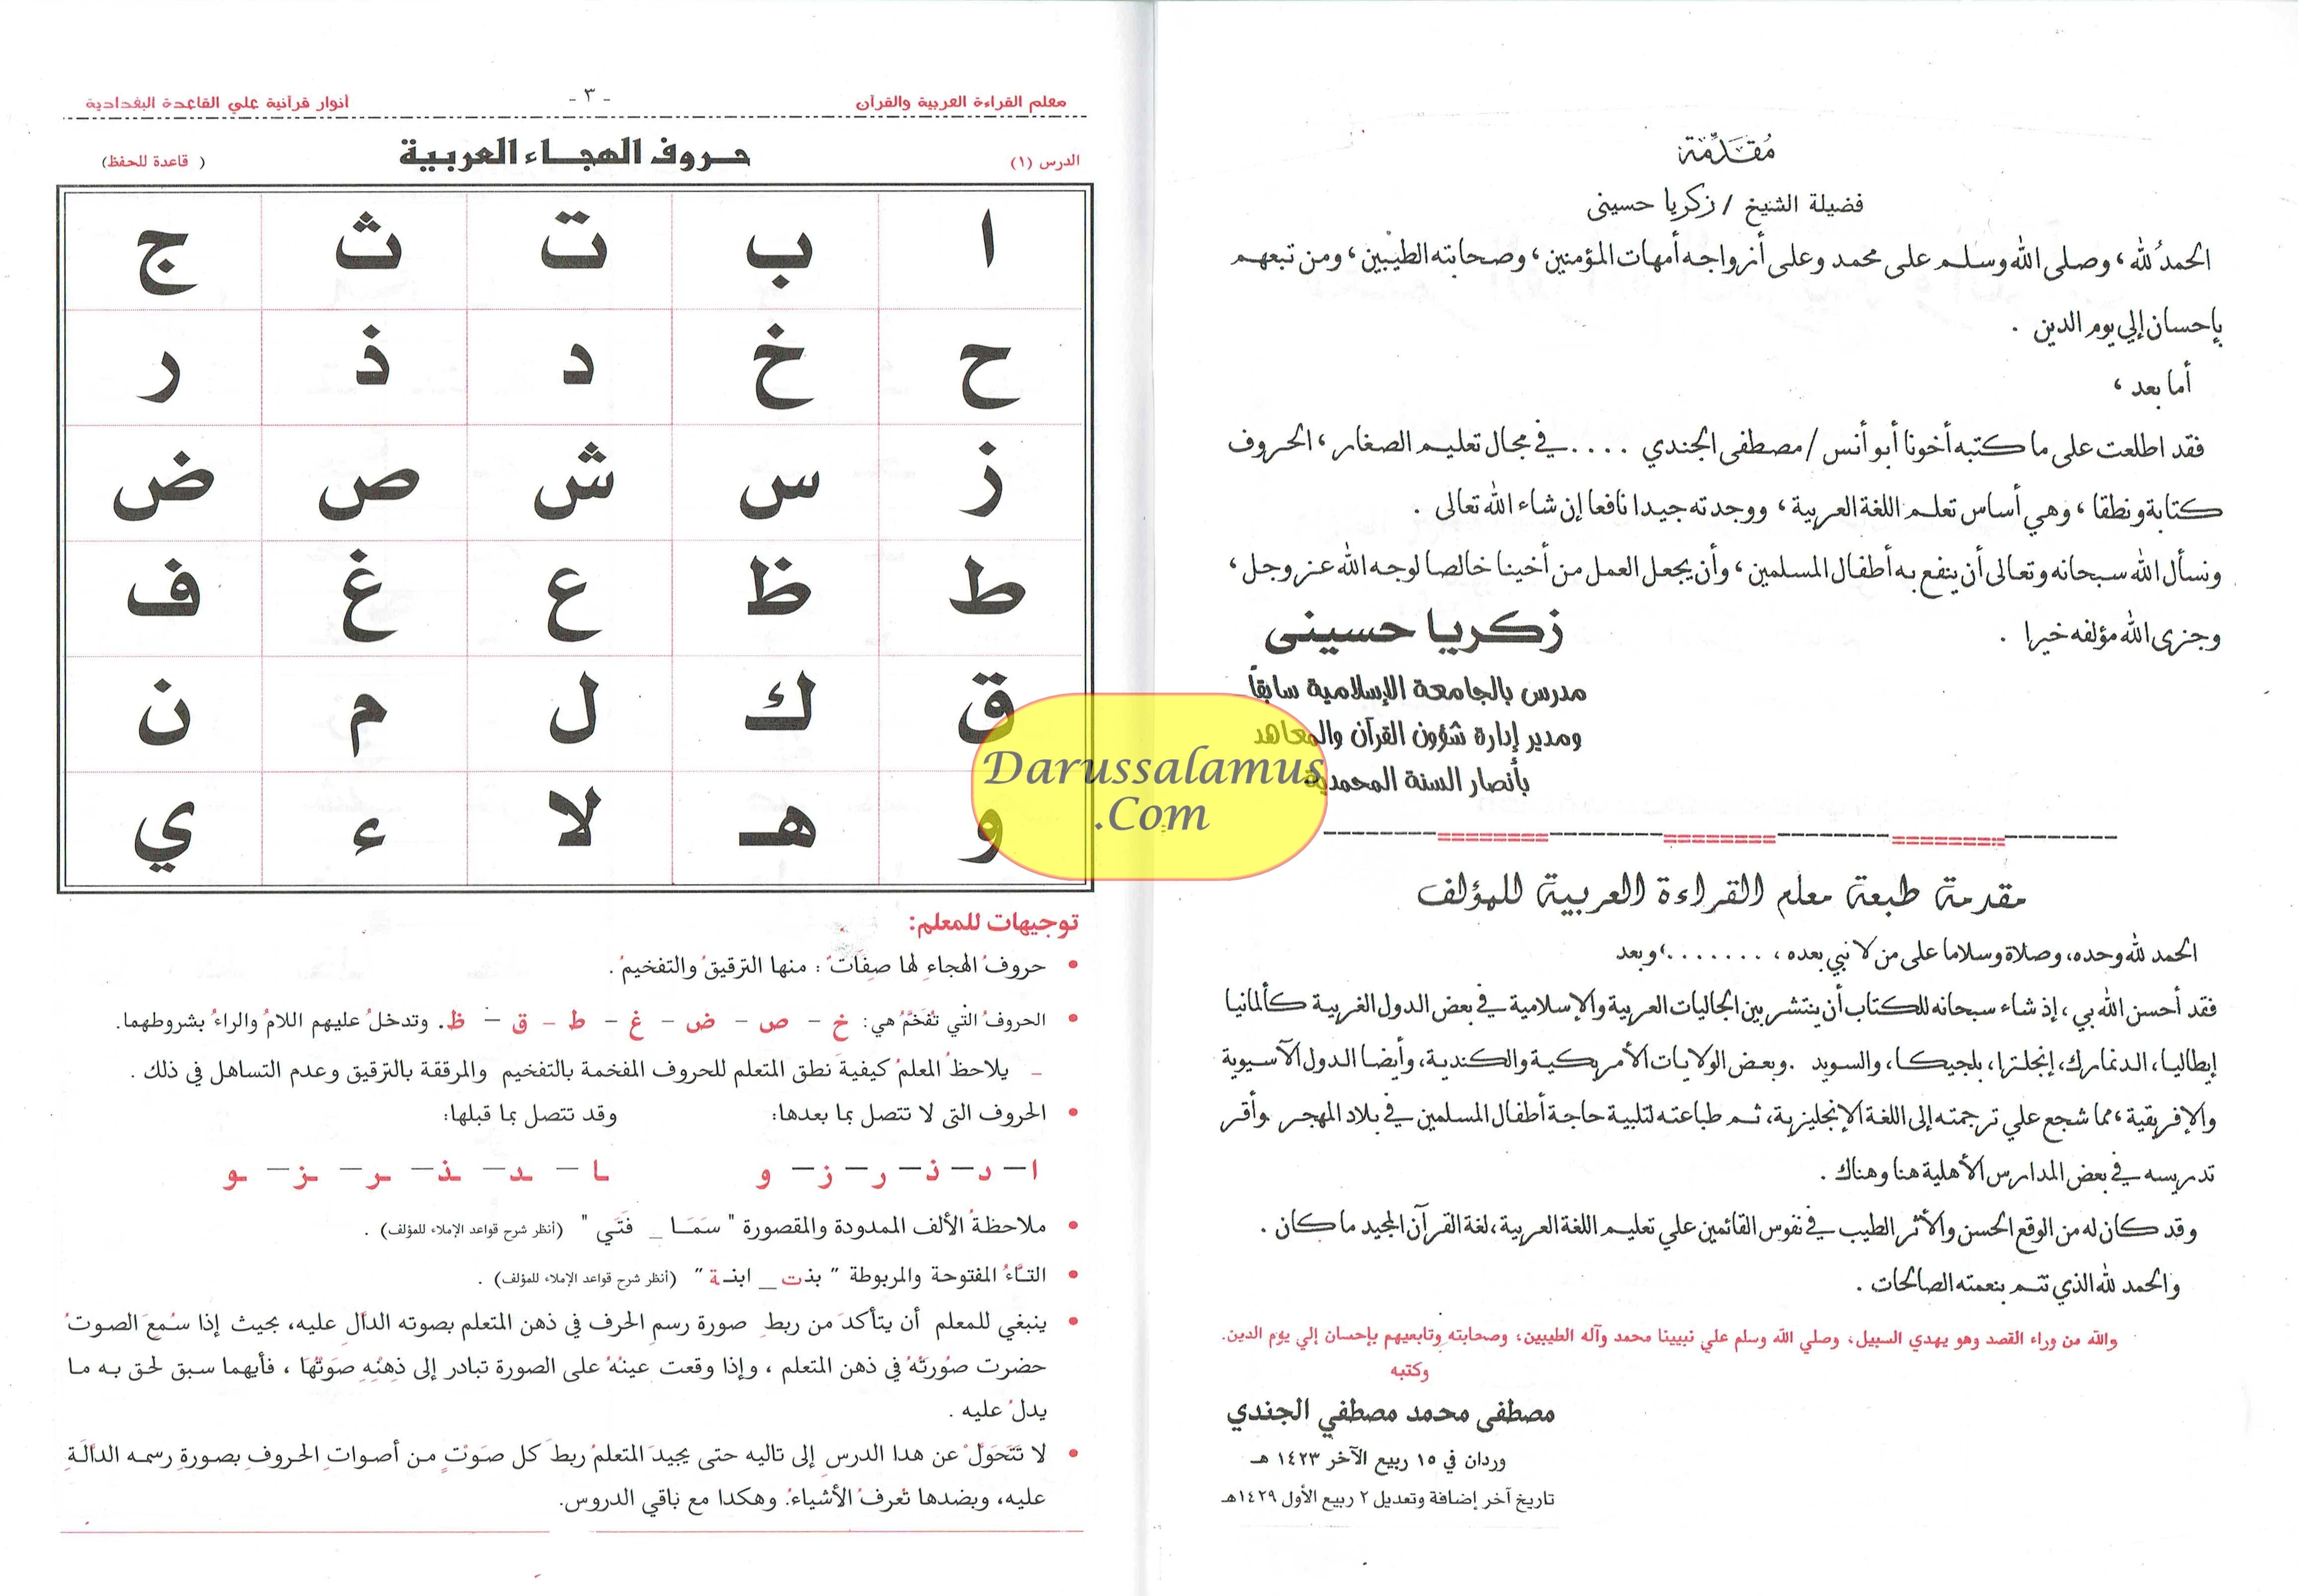 مُقَدِّمَة
فضيلة الشيخ / زكريا حسينى
الحمدُ لله ، وصلى الله وسلم على محمد وعلى أزواجه أمهات المؤمنين ، وصحابته الطيبين ، ومن تبعهم
بإحسان إلي يوم الدين .
أما بعد ،
فقد اطلعت على ما كتبه أخونا أبو أنس / مصطفى الجندي .... في مجال تعليم الصغار ، الحروف
كتابة ونطقا ، وهي أساس تعلم اللغة العربية ، ووجدته جيدا نافعا إن شاء الله تعالى .
ونسأل الله سبحانه وتعالى أن ينفع به أطفال المسلمين ، وأن يجعل العمل من أخينا خالصا لوجه الله عز وجل ،
وجزى الله مؤلفه خيرا .
زكريا حسينى
مدرس بالجامعة الإسلامية سابقاً
ومدير إدارة شؤون القرآن والمعاهد
بأنصار السنة المحمدية
مقدمة طبعة معلم القراءة العربية للمؤلف
الحمد لله وحده، وصلاة وسلاما على من لا نبي بعده ، ........، وبعد
فقد أحسن الله بي ، إذ شاء سبحانه للكتاب أن ينتشر بين الجاليات العربية والإسلامية في بعض الدول الغربية كألمانيا
إيطاليا، الدنمارك، إنجلترا، بلجيكا، والسويد . وبعض الولايات الأمريكية والكندية، وأيضا الدول الآسيوية
والإفريقية ، مما شجع علي ترجمته إلى اللغة الإنجليزية، ثم طباعته لتلبية حاجة أطفال المسلمين في بلاد المهجر وأقر
تدريسه في بعض المدارس الأهلية هنا وهناك .
وقد كان له من الوقع الحسن والأثر الطيب في نفوس القائمين علي تعليم اللغة العربية، لغة القرآن المجيد ما كان .
والحمد لله الذي تتم بنعمته الصالحات .
والله من وراء القصد وهو يهدي السبيل، وصلي الله وسلم علي نبيينا محمد وآله الطيبين، وصحابته وتابعيهم بإحسان إلي يوم الدين.
وكتبه
مصطفى محمد مصطفي الجندي
وردان في ١٥ ربيع الآخر ١٤٢٣ هـ
تاريخ آخر إضافة وتعديل ٢ ربيع الأول ١٤٢٩هـ
معلم القراءة العربية والقرآن - ٣ - أنوار قرآنية علي القاعدة البغدادية
الدرس (١) حروف الهجاء العربية ( قاعدة للحفظ)
ا ب ت ث ج
ح خ د ذ ر
ز س ش ص ض
ط ظ ع غ ف
ق ك ل م ن
و هـ لا ء ي
توجيهات للمعلم:
• حروفُ الهجاءِ لها صِفَاتٌ : منها الترقيقُ والتفخيمُ .
• الحروفُ التي تُفَخَّمُ هي: خ – ص – ض – غ – ط – ق – ظ. وتدخلُ عليهم اللامُ والراءُ بشروطهما.
_ يلاحظُ المعلمُ كيفيةَ نطق المتعلم للحروف المفخمة بالتفخيم والمرققة بالترقيق وعدم التساهل في ذلك .
• الحروف التى لا تتصل بما بعدها: وقد تتصل بما قبلها:
ا – د – ذ – ر – ز – و ـا – ـد – ـذ – ـر – ـز – ـو
• ملاحظةُ الألف الممدودة والمقصورة " سَمَـا _ فَتَي " (أنظر شرح قواعد الإملاء للمؤلف) .
• التـاءُ المفتوحة والمربوطة " بنت _ ابنـة " (أنظر شرح قواعد الإملاء للمؤلف) .
• ينبغي للمعلم أن يتأكدَ من ربطِ صورة رسمِ الحرف في ذهن المتعلم بصوته الدآلِ عليه، بحيث إذا سُمعَ الصوتُ
حضرت صُورَتُهُ في ذهن المتعلم ، وإذا وقعت عينُهُ على الصورة تبادر إلى ذِهْنِهِ صَوتُهَا ، فأيهما سبق لحق به ما
يدلُ عليه .
• لا تَتَحَوَّلْ عن هدا الدرسِ إلى تاليه حتى يجيدَ المتعلمُ ربطَ كل صَوْتٍ من أصواتِ الحروفِ بصورةِ رسمه الدآلَةِ
عليه، وبضدها تُعرفُ الأشياءُ. وهكدا مع باقي الدروس.
Darussalamus
.Com